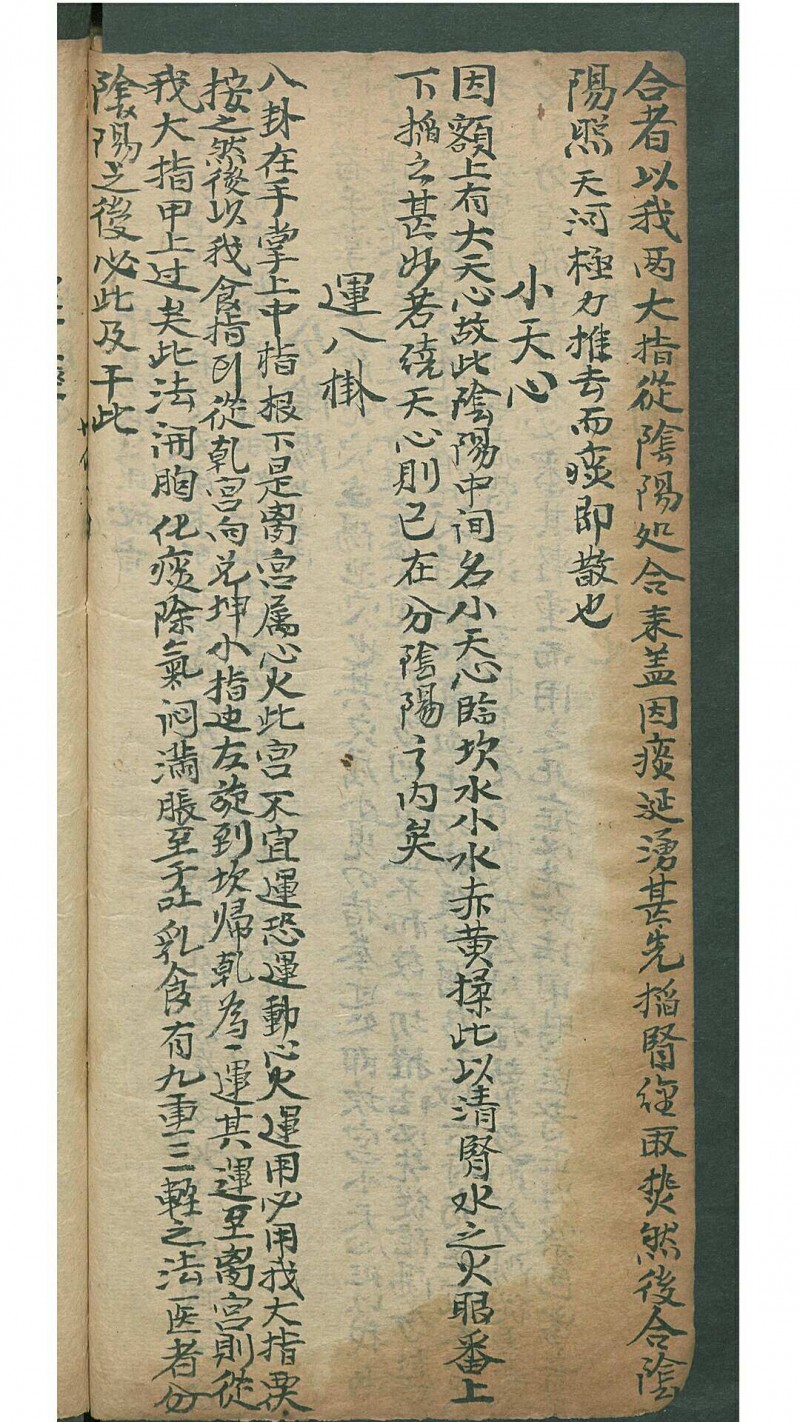 合者以我两大指從陰陽処合来盖因痰涎湧甚先搯腎經取熱然後合陰
陽照天河極力推去而痰即散也
小天心
因額上有大天心故此陰陽中间名小天心臨坎水小水赤黄揉此以清腎水之火眼番上
下搯之甚妙若繞天心則已在分陰陽之内矣
運八掛
八卦在手掌上中指根下是离宫属心火此宫不宜運恐運動心火運用必用我大指
按之然後以我食指從乾宫向兑坤小指边左旋到坎歸乾為一運其運至离宫則從
我大指甲上过矣此法開胸化痰除氣闷满脹至于吐乳食有九重三輕之法医者分
陰陽之後必此及于此